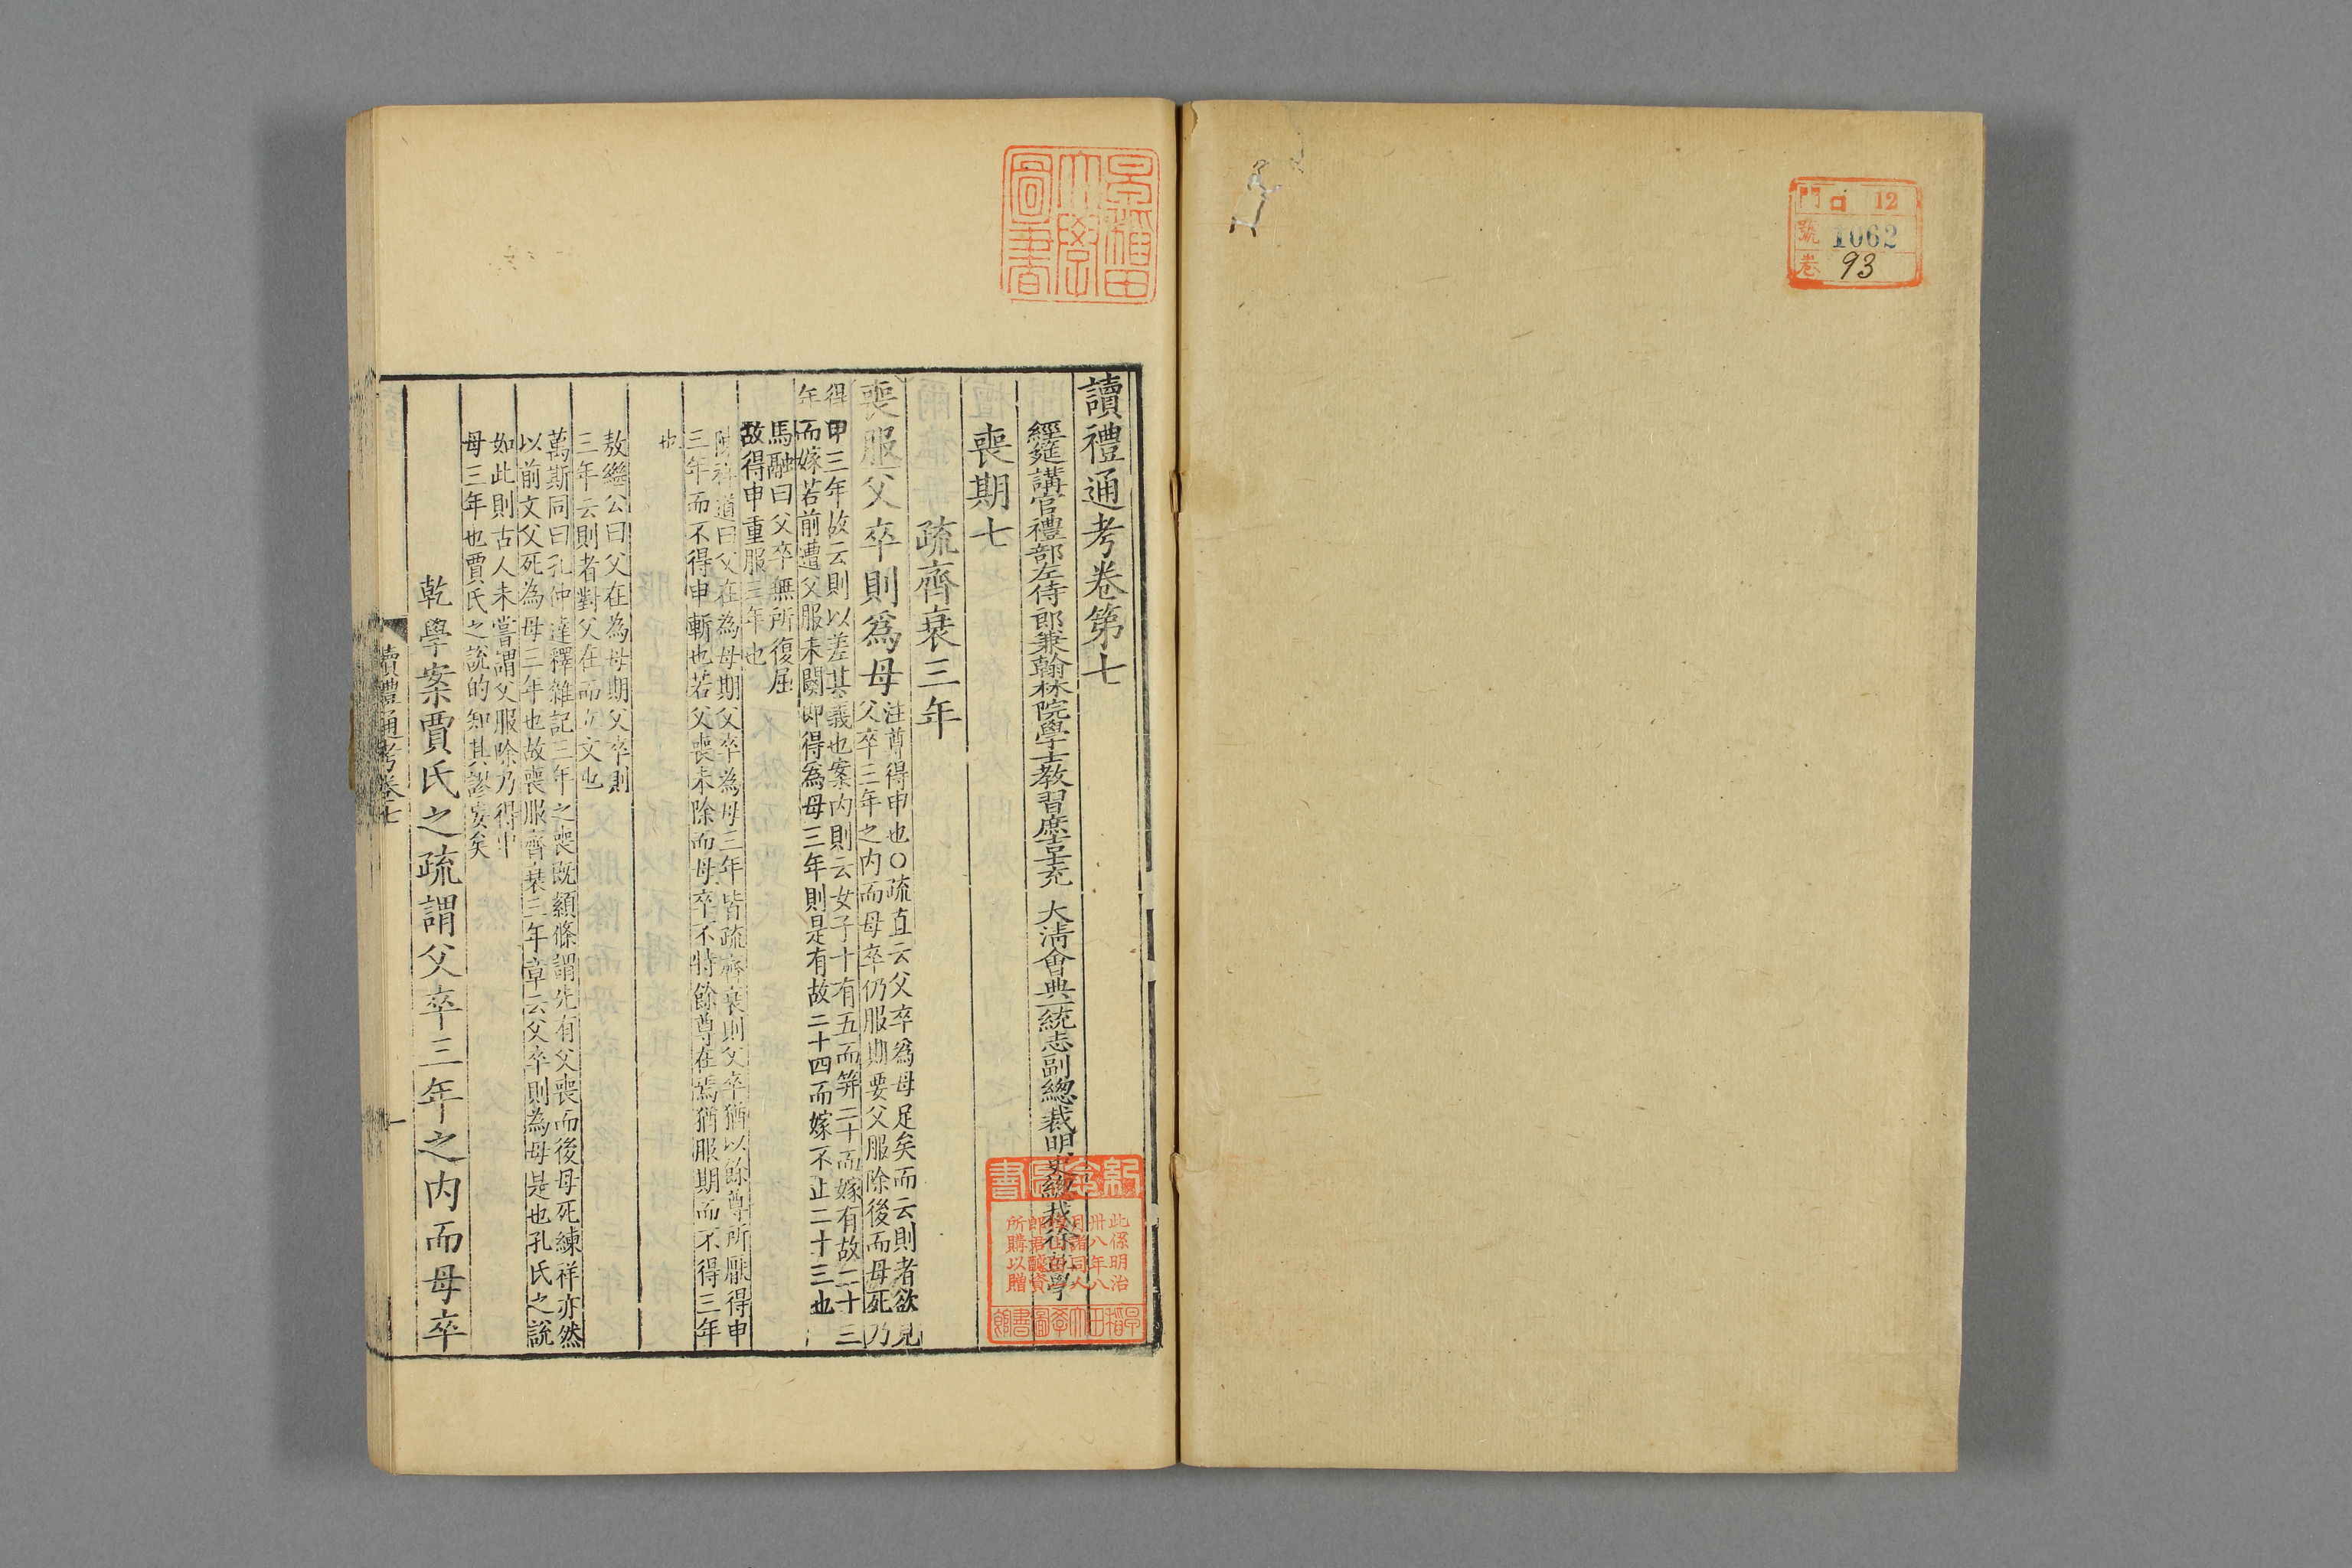 門 ロ 12
號 1062
卷 93
早稲田
大學
圖書
讀禮通考卷第七
經筵講官禮部左侍郎兼翰林院學士教習庶吉士充 大清會典一統志副總裁明史總裁徐乾學
喪期七
疏齊衰三年
喪服父卒則爲母
注尊得申也○疏直云父卒爲母足矣而云則者欲見
父卒三年之內而母卒仍服期要父服除後而母死乃
得申三年故云則以差其義也案內則云女子十有五而笄二十而嫁有故二十三
年而嫁若前遭父服未闋卽得爲母三年則是有故二十四而嫁不止二十三也
馬融曰父卒無所復屈
故得申重服三年也
陳祥道曰父在為母期父卒為母三年皆疏齊衰則父卒猶以餘尊所厭得申
三年而不得申斬也若父喪未除而母卒不特餘尊在焉猶服期而不得三年
也
敖繼公曰父在為母期父卒則
三年云則者對父在而立文也
萬斯同曰孔仲達釋雜記三年之喪既顈條謂先有父喪而後母死練祥亦然
以前文父死為母三年也故喪服齊衰三年章云父卒則為母是也孔氏之說
如此則古人未嘗謂父服除乃得申
母三年也賈氏之說的知其謬妄矣
乾學案賈氏之疏謂父卒三年之內而母卒
讀禮通考卷七
一
此係明治
卅八年八
月諸同人
所購以贈
早稲田大學圖書館